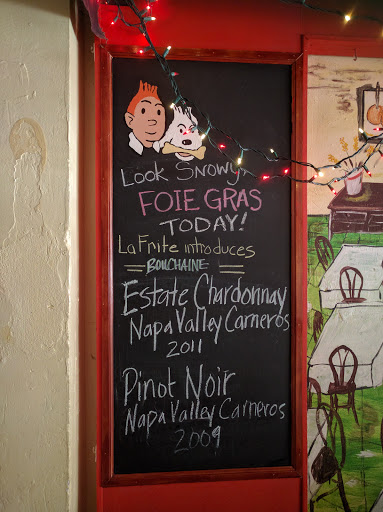 Look Snowy,
FOIE GRAS
TODAY!
La Frite introduces
BOILCHAINE
Estate Chardonnay
Napa Valley Carneros
2011
Pinot Noir
Napa Valley Carneros
2009